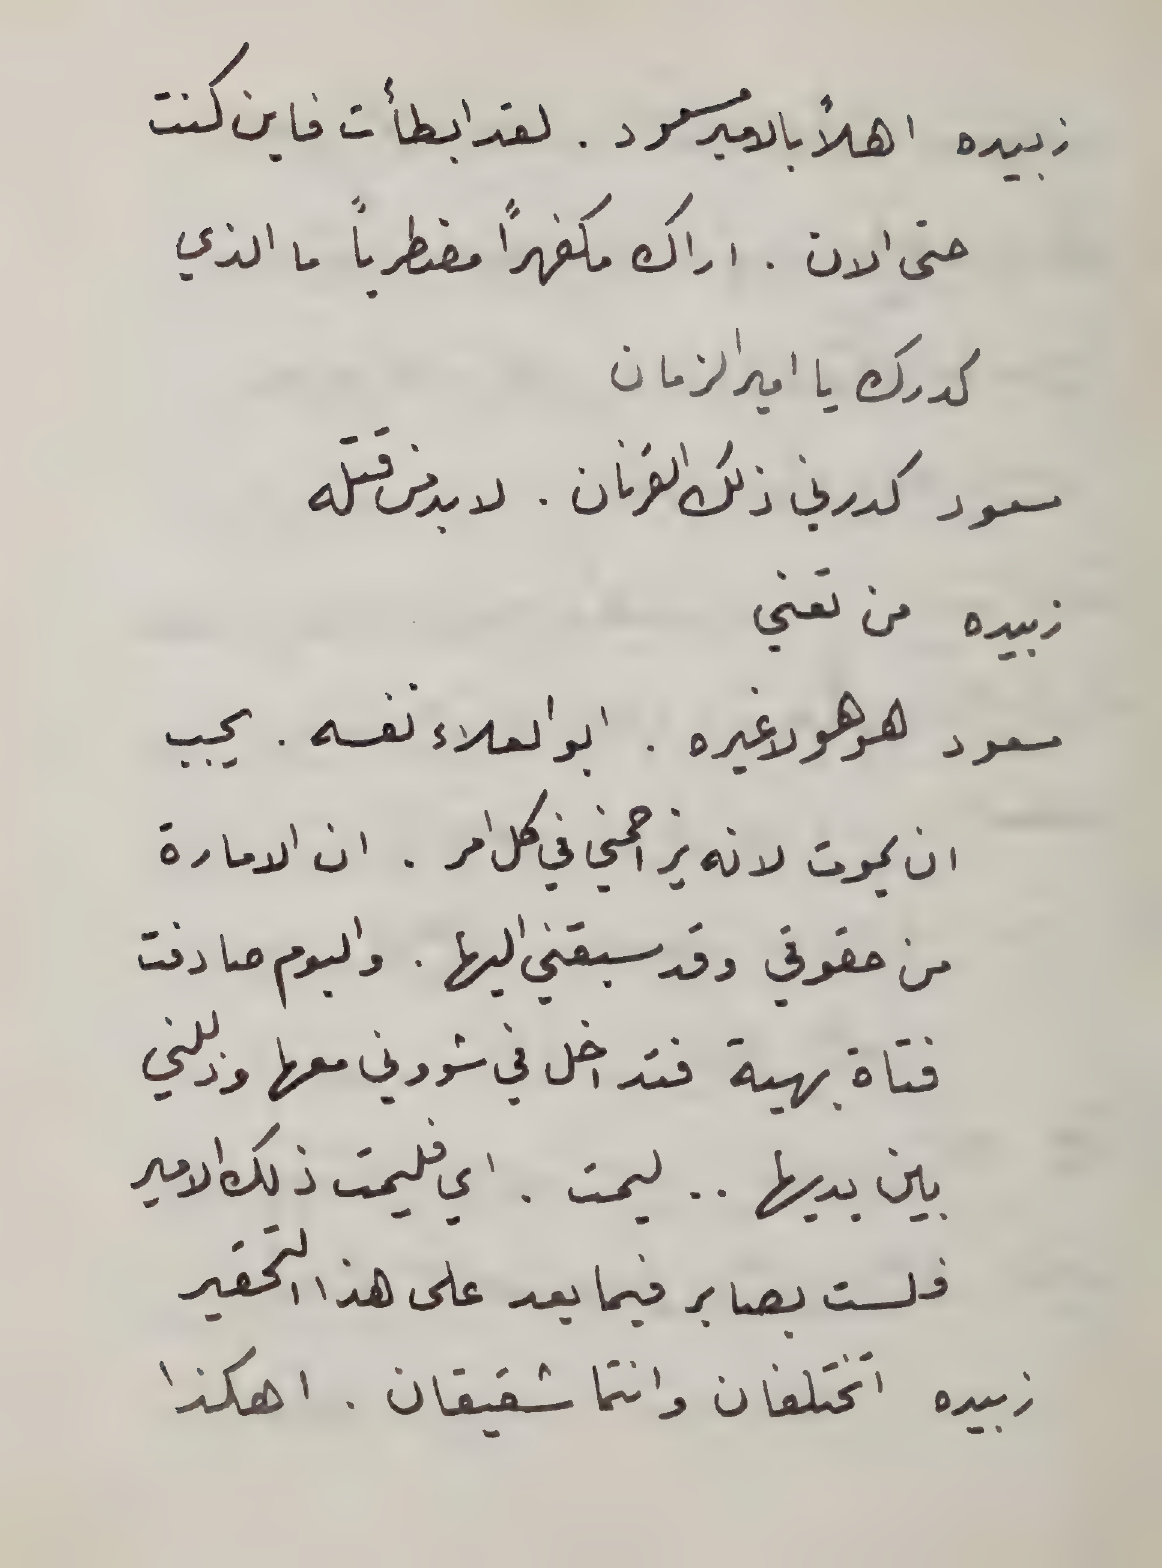 زبيده اهلاً بالامير مسعود . لقد ابطأت فاين كنت
حتى الان . اراك مكفهراً مضطرباً ما الذي
كدرك يا امير الزمان
مسعود كدرني ذلك القرنان . لا بد من قتله
زبيده من تعني
مسعود هو هو لا غيره . ابو العلاء نفسه . يجب
ان يموت لانه يزاحمني في كل امر . ان الامارة
من حقوقي وقد سبقني اليها . واليوم صادفت
فتاة بهية فتداخل في شووني معها وذللني
بين يديها .. ليمت . اي فليمت ذلك الامير
فلست بصابر فيما بعد على هذا التحقير
زبيده اتختلفان وانتما شقيقان . اهكذا